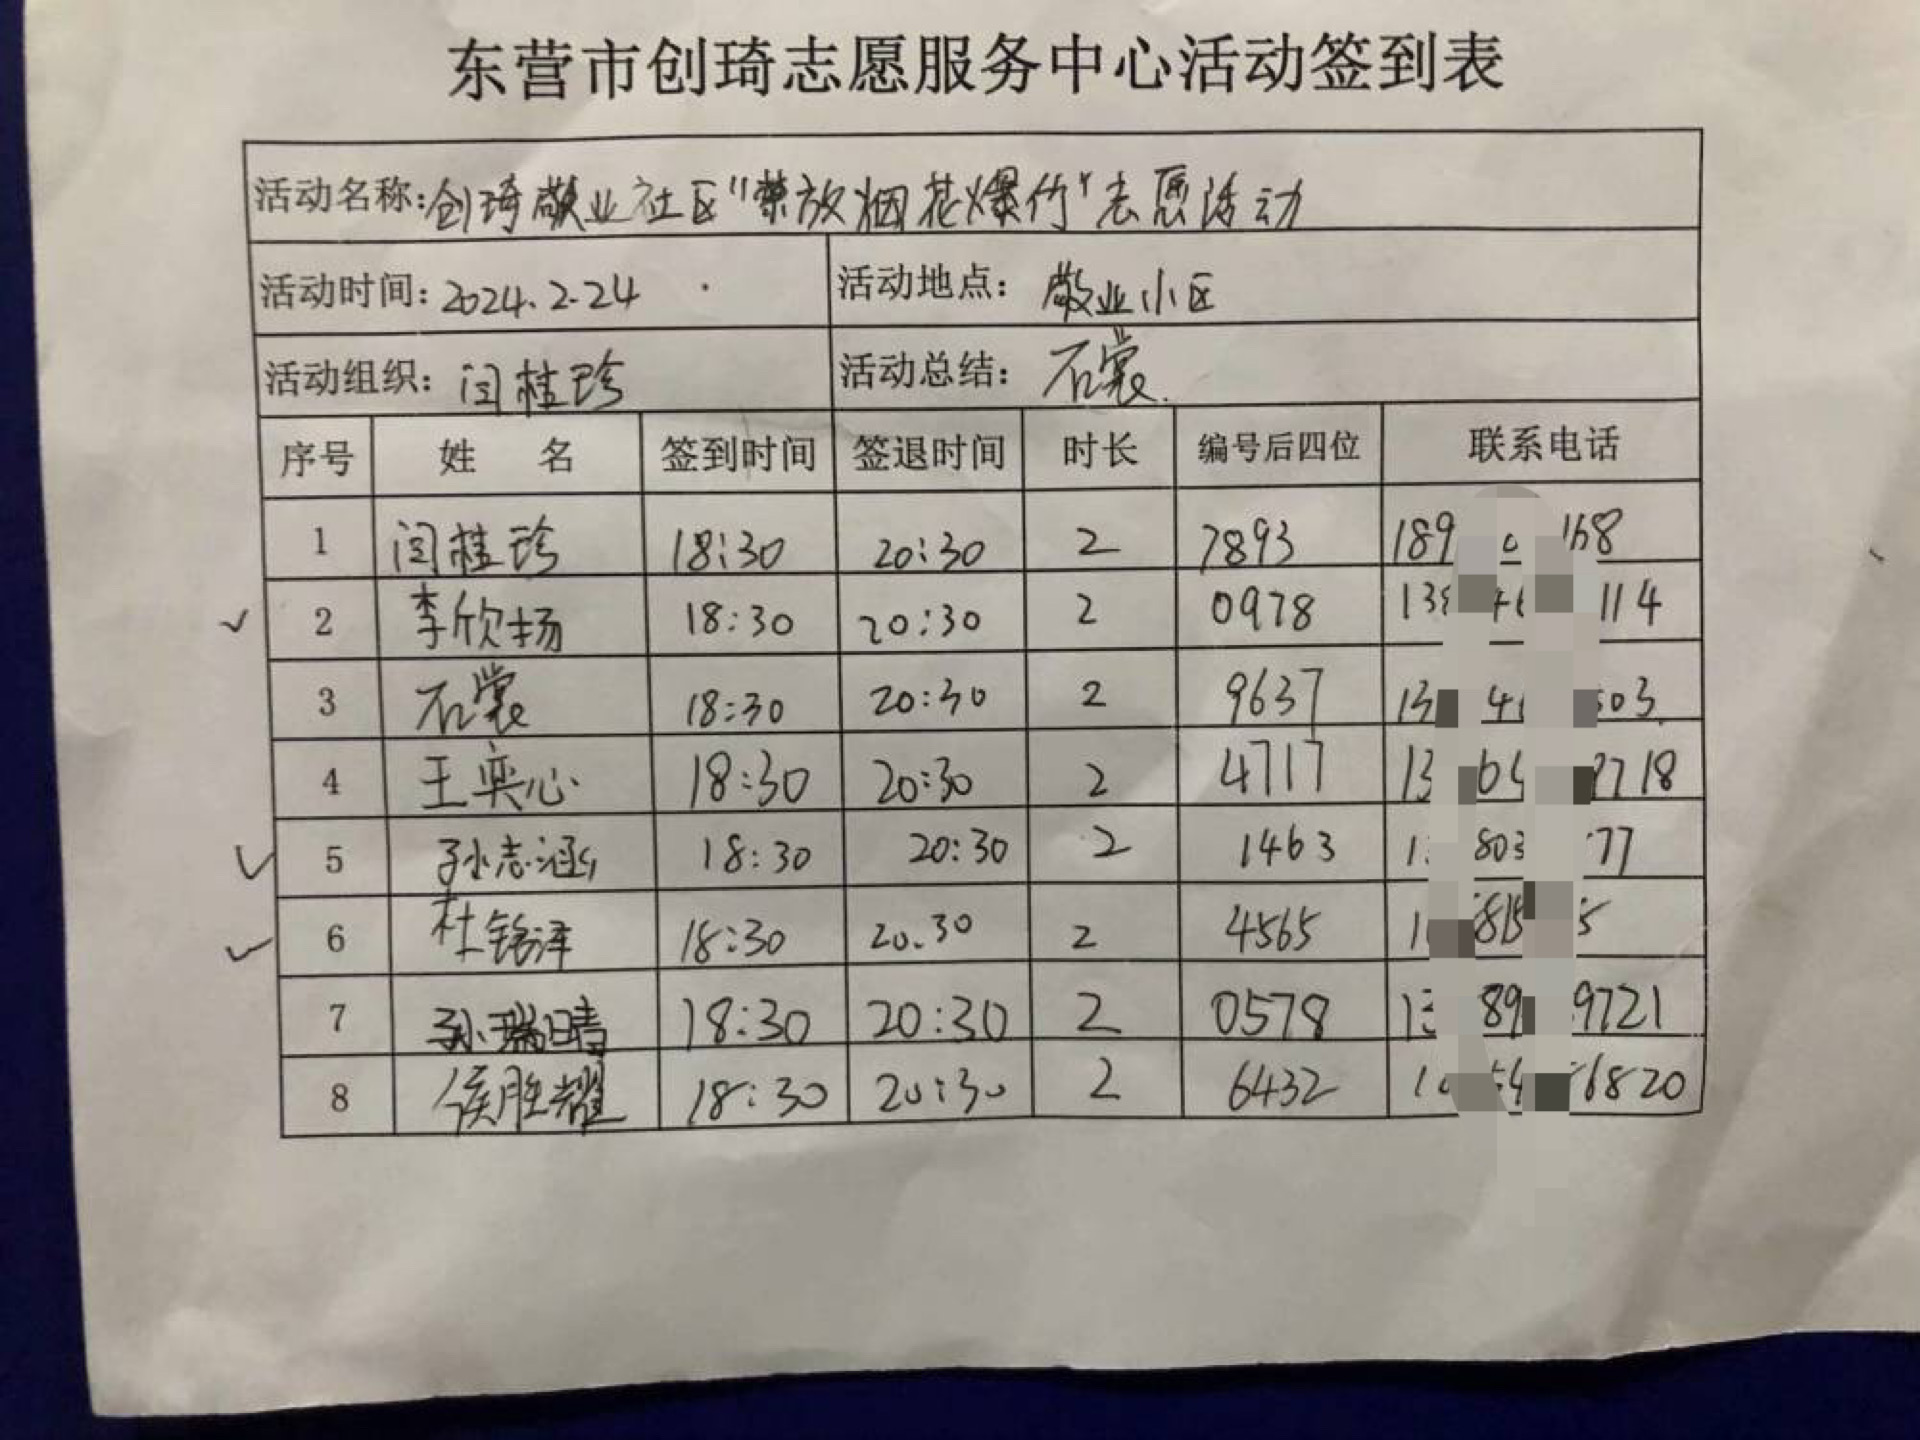 东营市创琦志愿服务中心活动签到表
活动名称:创琦敬业社区"禁放烟花爆竹"志愿活动
活动时间:2024.2.24 活动地点: 敬业小区
活动组织: 闫桂珍 活动总结: 石裳
序号 姓 名 签到时间 签退时间 时长 编号后四位 联系电话
1 闫桂珍 18:30 20:30 2 7893 189 168
2 李欣扬 18:30 20:30 2 0978 114
3 石裳 18:30 20:30 2 9637 13 03
4 王奕心 18:30 20:30 2 4717 13 718
5 孙志涵 18:30 20:30 2 1463 803 77
6 杜铭泽 18:30 20.30 2 4565 815 5
7 孙瑞晴 18:30 20:30 2 0578 13 89 9721
8 侯胜耀 18:30 20:30 2 6432 6820